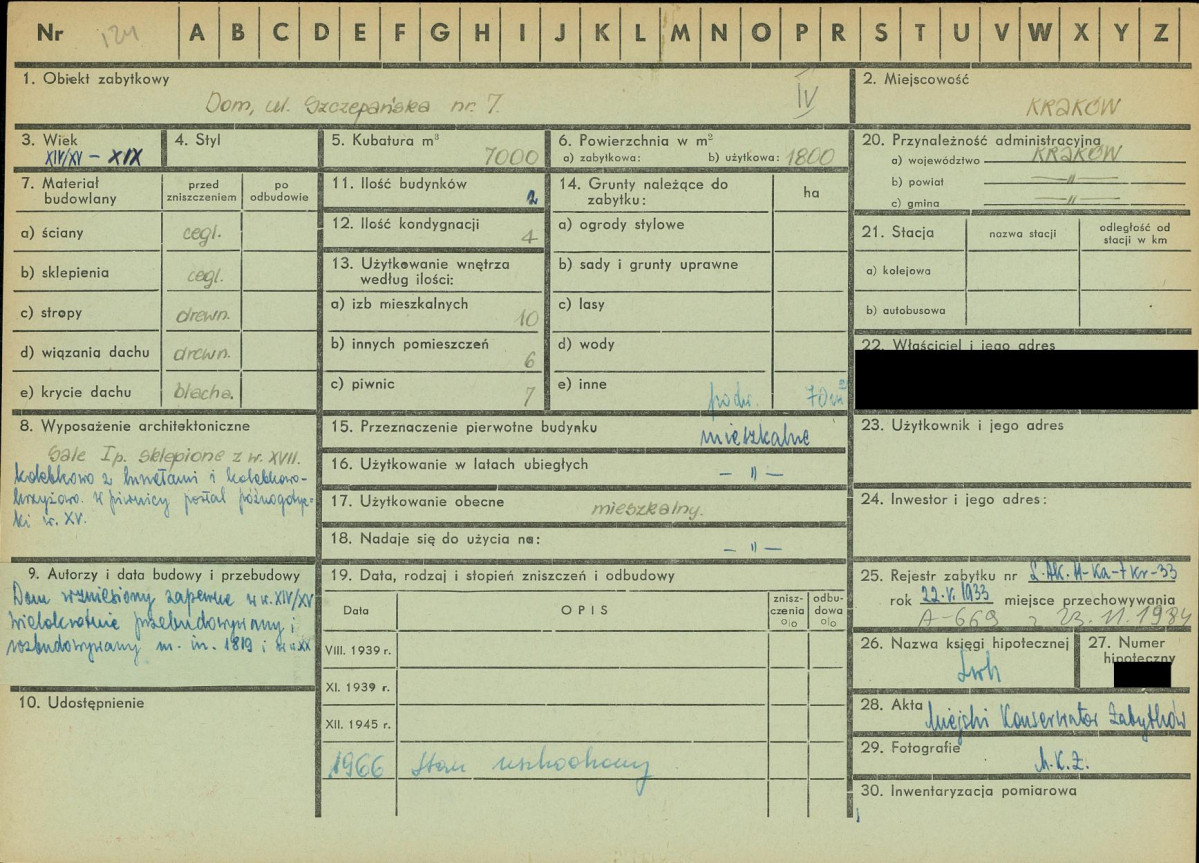 Nr 124 A B C D E F G H I J K L M N O P R S T U V W X Y Z
1. Obiekt zabytkowy
Dom, ul. Szczepańska nr. 7. IV
2. Miejscowość
KRAKÓW
3. Wiek
XIV/XV – XIX
4. Styl
5. Kubatura m³
7000
6. Powierzchnia w m²
a) zabytkowa: b) użytkowa: 1800
20. Przynależność administracyjna
a) województwo KRAKÓW
b) powiat —„—
c) gmina —„—
7. Materiał budowlany
przed zniszczeniem
po odbudowie
a) ściany cegl.
b) sklepienia cegl.
c) stropy drewn.
d) wiązania dachu drewn.
e) krycie dachu blacha.
11. Ilość budynków
2
12. Ilość kondygnacji
4
13. Użytkowanie wnętrza
według ilości:
a) izb mieszkalnych
10
b) innych pomieszczeń
6
c) piwnic
7
14. Grunty należące do
zabytku:
ha
a) ogrody stylowe
b) sady i grunty uprawne
c) lasy
d) wody
e) inne
podw. 70 m²
21. Stacja
nazwa stacji
odległość od
stacji w km
a) kolejowa
b) autobusowa
22. Właściciel i jego adres
8. Wyposażenie architektoniczne
Sale I p. sklepione z w. XVII.
kolebkowo z lunetami i kolebkowo-
krzyżowo. W piwnicy portal późnogotyc-
ki w. XV.
15. Przeznaczenie pierwotne budynku
mieszkalne
16. Użytkowanie w latach ubiegłych
– „ –
17. Użytkowanie obecne
mieszkalny.
18. Nadaje się do użycia na:
– „ –
23. Użytkownik i jego adres
24. Inwestor i jego adres:
9. Autorzy i data budowy i przebudowy
Dom wzniesiony zapewne w w. XIV/XV
wielokrotnie przebudowywany i
rozbudowywany m. in. 1819 i w w. XX
19. Data, rodzaj i stopień zniszczeń i odbudowy
Data
OPIS
znisz-
czenia
%
odbu-
dowa
%
VIII. 1939 r.
XI. 1939 r.
XII. 1945 r.
1966 Stan
25. Rejestr zabytku nr L.AK.II-Ka-7 Kr-33
rok 22.V.1933 miejsce przechowywania
A-669 z 23.11.1984
26. Nazwa księgi hipotecznej
Lwh
27. Numer
hipoteczny
28. Akta Miejski Konserwator Zabytków
29. Fotografie
M.K.Z.
10. Udostępnienie
30. Inwentaryzacja pomiarowa